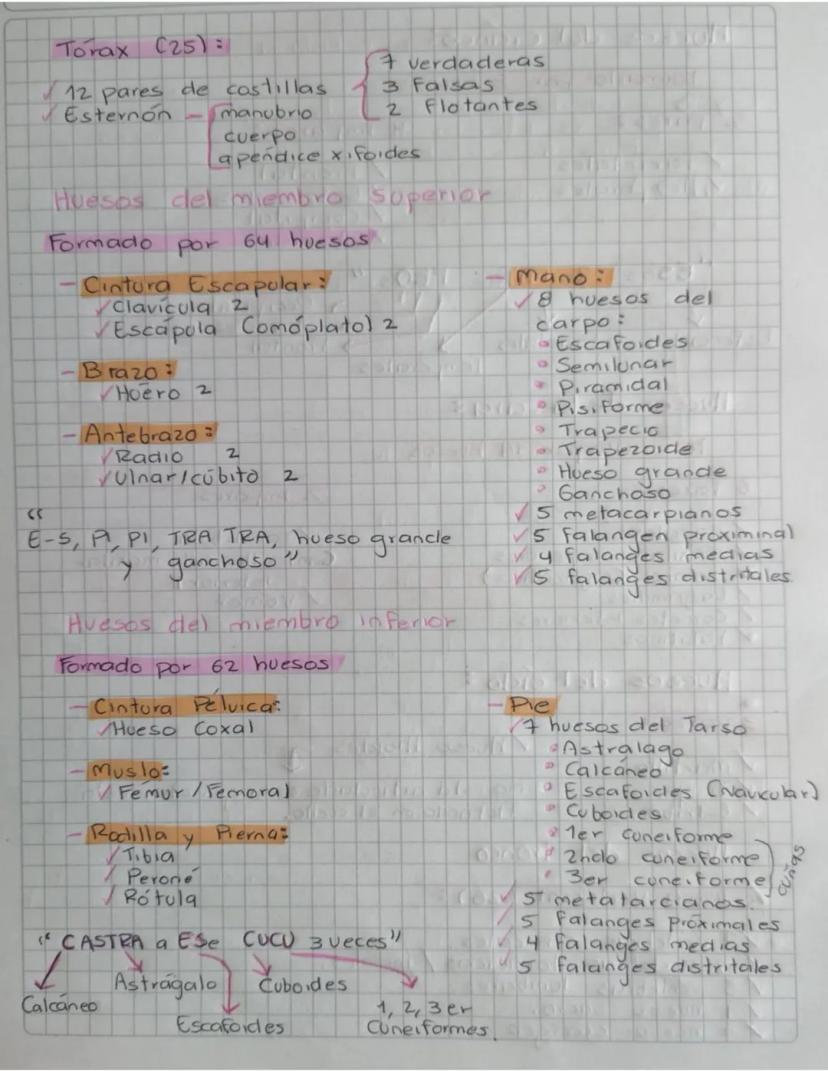 Tórax (25):
✓ 12 pares de costillas
7 verdaderas
3 Falsas
2 flotantes
✓ Esternón - manubrio
cuerpo
apéndice xifoides
Huesos del miembro superior
Formado por 64 huesos
- Cintura Escapular:
✓ Clavícula 2
✓ Escápula (omóplato) 2
- Brazo:
✓ Húero 2
- Antebrazo:
✓ Radio 2
✓ Ulnar/cúbito 2
"E-S, PI, PI, TRA TRA, hueso grande
y ganchoso"
- Mano:
✓ 8 huesos del
carpo:
° Escafoides
° Semilunar
° Piramidal
° Pisiforme
° Trapecio
° Trapezoide
° Hueso grande
° Ganchoso
✓ 5 metacarpianos
✓ 5 falangen proximinal
✓ 4 falanges medias
✓ 5 falanges distritales
Huesos del miembro inferior
Formado por 62 huesos
- Cintura Pélvica:
✓ Hueso Coxal
- Muslo:
✓ Fémur / Femoral
- Rodilla y Pierna:
✓ Tibia
✓ Peroné
✓ Rótula
- Pie
✓ 7 huesos del Tarso
° Astrálago
° Calcáneo
° Escafoides (Navicular)
° Cuboides
° 1er cuneiforme
° 2ndo cuneiforme
° 3er cuneiforme
cuñas
✓ 5 metatarcianos.
✓ 5 falanges proximales
✓ 4 falanges medias
✓ 5 falanges distritales
"CASTRA a ESe CUCU 3 veces"
Calcáneo
Astrágalo
Escafoides
Cuboides
1, 2, 3er
Cuneiformes.